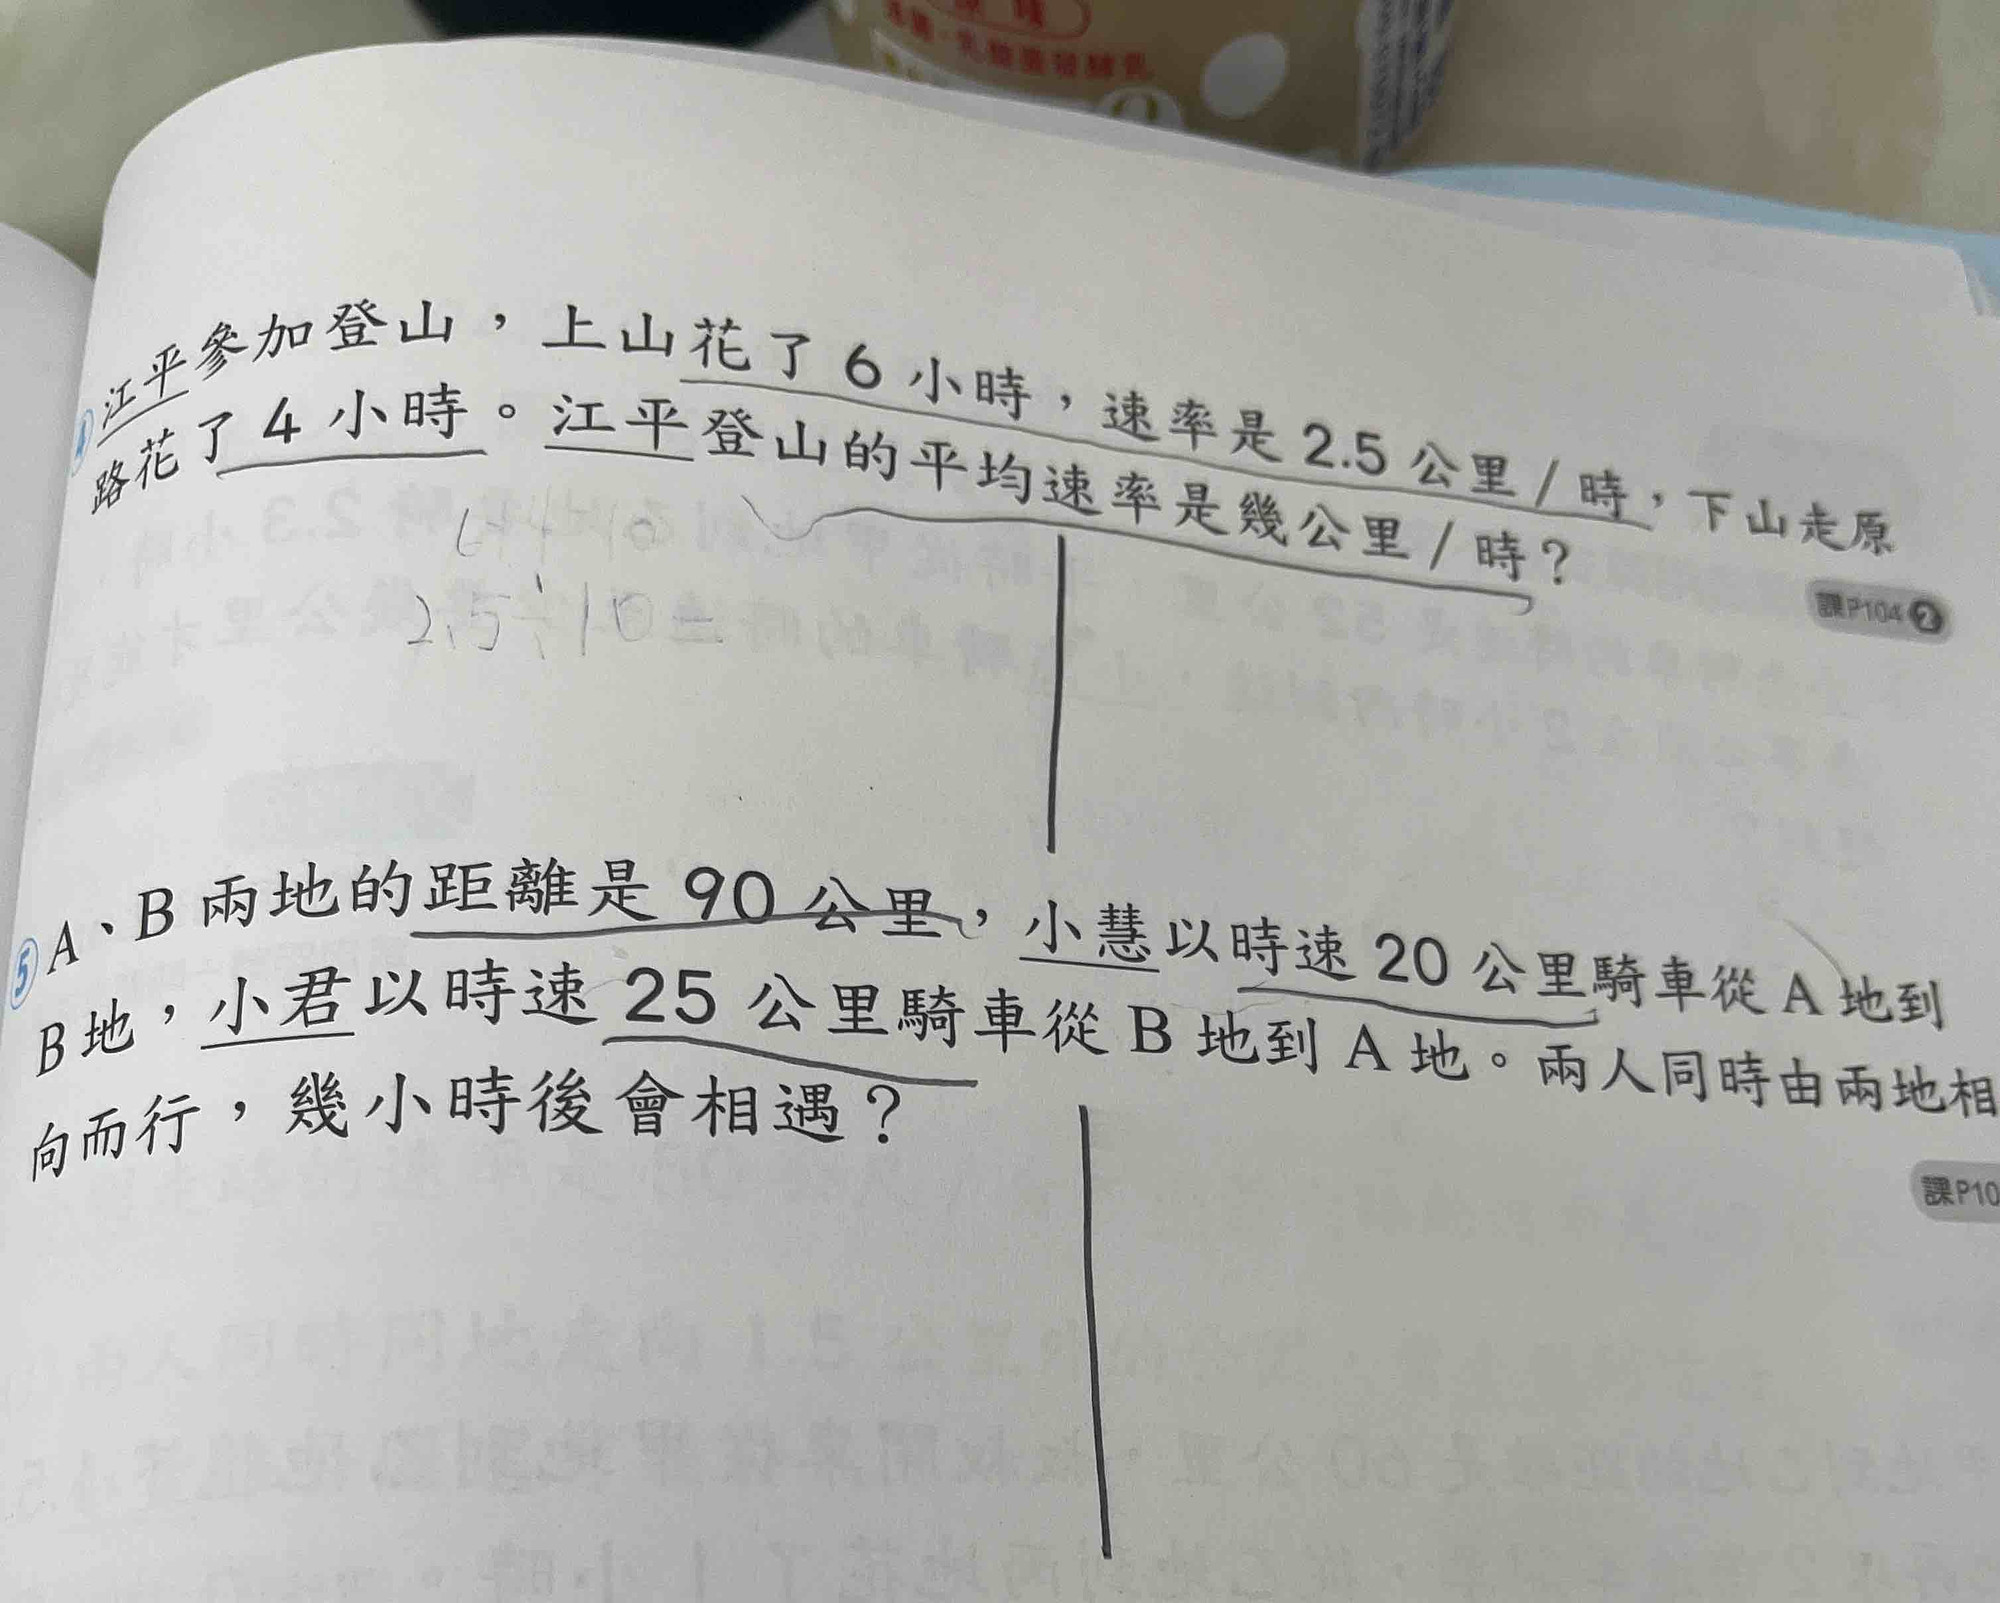 乳酸菌發酵乳
④江平參加登山，上山花了6小時，速率是2.5公里/時，下山走原
路花了4小時。江平登山的平均速率是幾公里/時？
課P104❷
6+4=10
2.5÷10=
⑤A、B兩地的距離是90公里，小慧以時速20公里騎車從A地到
B地，小君以時速25公里騎車從B地到A地。兩人同時由兩地相
向而行，幾小時後會相遇？
課P10